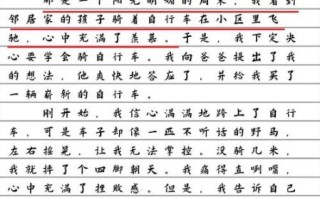 那是一个阳光明媚的周末，我看到
邻居家的孩子骑着自行车在小区里飞
驰，心中充满了羡慕。于是，我下定决
心要学会骑自行车。我向爸爸提出了我
的想法，他爽快地答应了，并给我买了
一辆崭新的自行车。
刚开始，我信心满满地跨上了自行
车，可是车子却像一匹不听话的野马，
左右摇晃，让我无法掌控。没骑几米，
我就摔了个四脚朝天。我痛得直咧嘴，
心中充满了挫败感。但是，我告诉自己